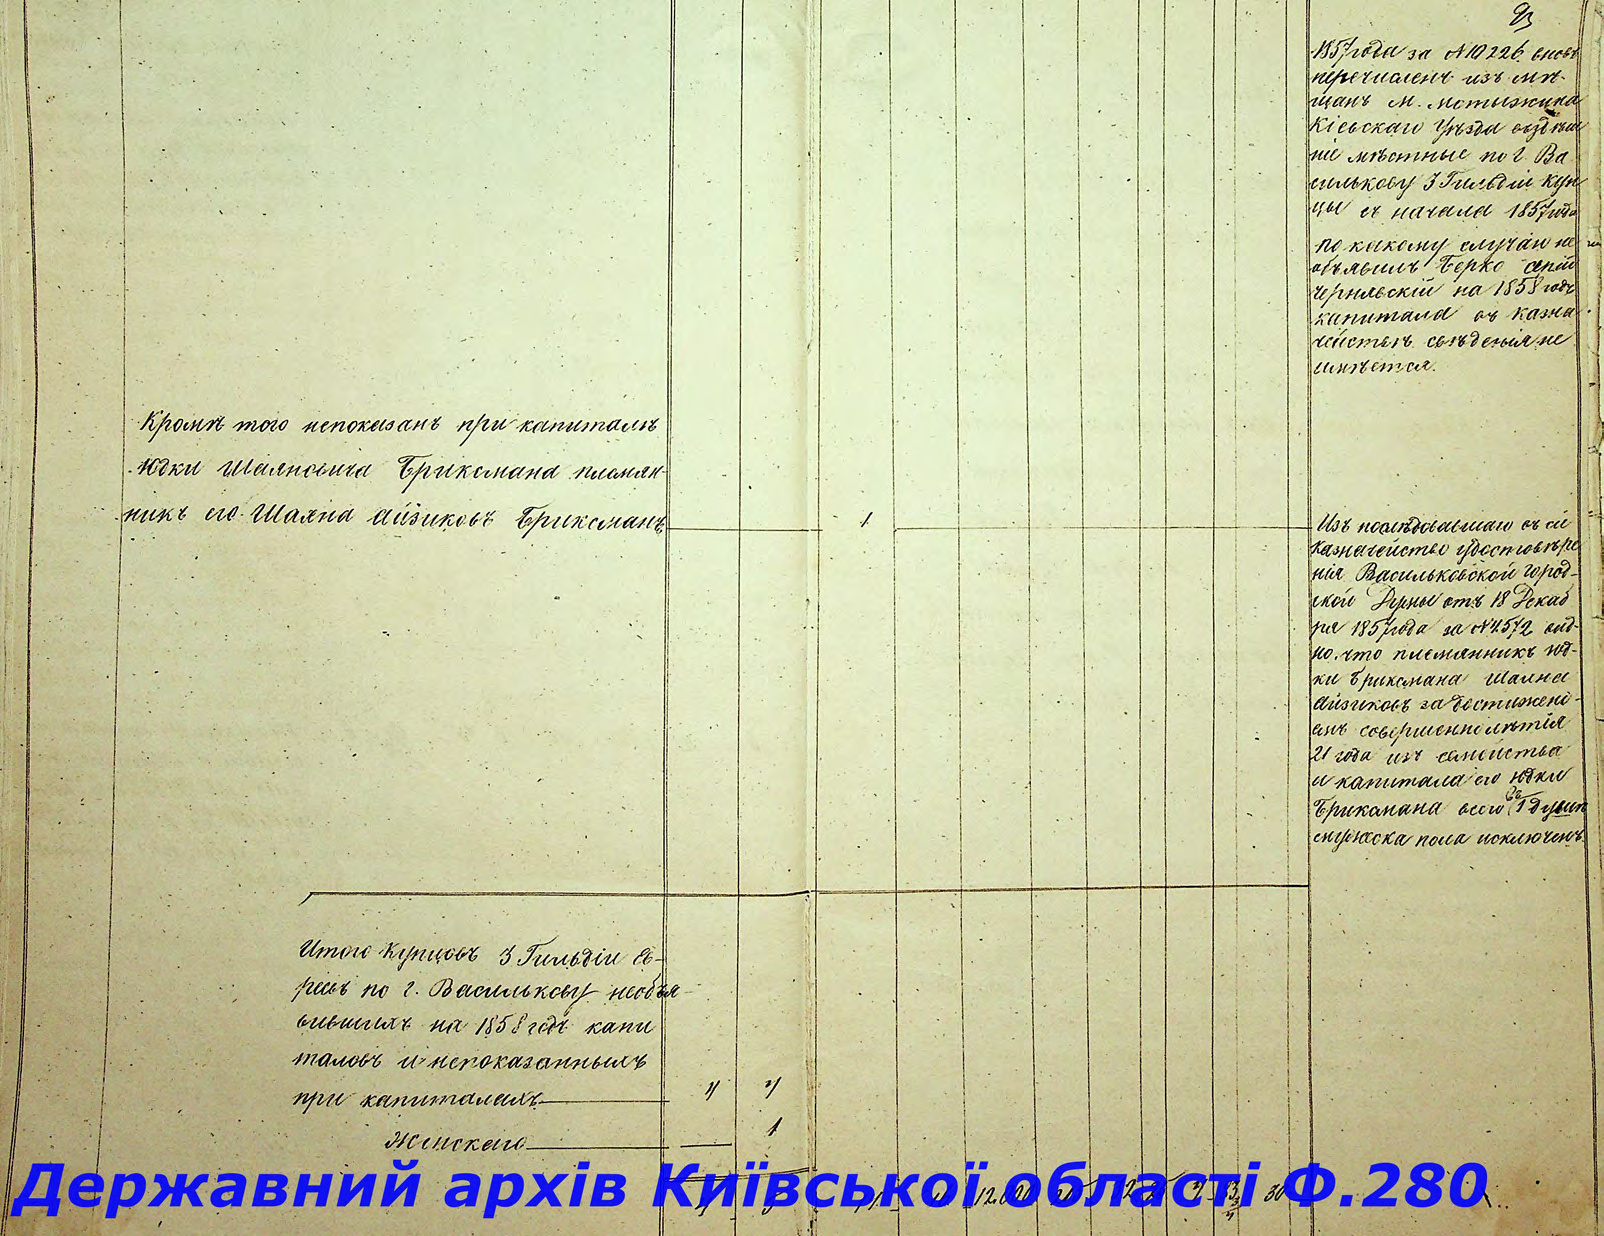 93
1857 года за №10226 вновь
перечисленъ изъ мѣ-
щанъ м. Мотыжина
Кіевскаго Уѣзда въ
мѣстные по г. Ва
силькову 3 Гильдіи Куп
цы съ начала 1857 года
по какому случаю не
объявилъ Берко
Чернявскій на 1858 годъ
капитала въ Казна
чействѣ свѣденія не
имѣется.
Кромѣ того непоказанъ при капиталѣ
Юдки Шаяновича Бриксмана племян-
никъ его Шаяна Айзиковъ Бриксманъ
1
Изъ послѣдовавшаго въ сіе
Казначейство удостовѣре
нія Васильковской Город-
ской Думы отъ 18 Декаб
ря 1857 года за №4572 вид-
но, что племянникъ Юд-
ки Бриксмана Шаяна
Айзиковъ за достижені-
емъ совершеннолѣтія
21 года изъ семейства
и капитала его Юдки
Бриксмана всего въ 1 душѣ
мужеска пола исключенъ.
Итого Купцовъ 3 Гильдіи Ев-
реевъ по г. Василькову необъя-
вившихъ на 1858 годъ капи
таловъ и непоказанныхъ
при капиталахъ
Женскаго
1
Державний архів Київської області Ф.280